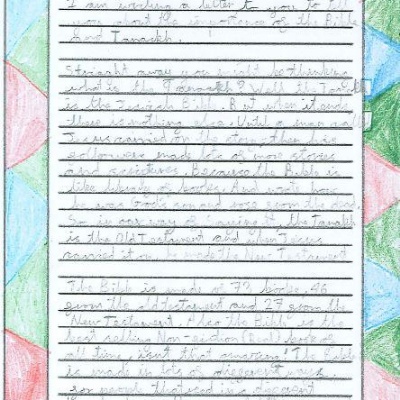 I am writing a letter to you to tell
you about the importance of the Bible
and Tanakh.
Straight away you might be thinking
what is the Tanakh? Well the Tanakh
is the Jewish Bible. But when it ends
there is nothing else. Until a man called
Jesus carried on the story, then his
followers made lots of more stories
and scriptures. Because the Bible is
like library of books. And wrote how
he was God's son and rose from the dead.
So in our way of saying it, the Tanakh
is the Old Testament and when Jesus
carried it on, he made the New Testament.
The Bible is made of 73 books. 46
from the old testament and 27 from the
New Testament. Also the Bible is the
best selling Non-fiction book of
all time, isn't that amazing! The Bible
is made in lots of different ways
for people that need in a different